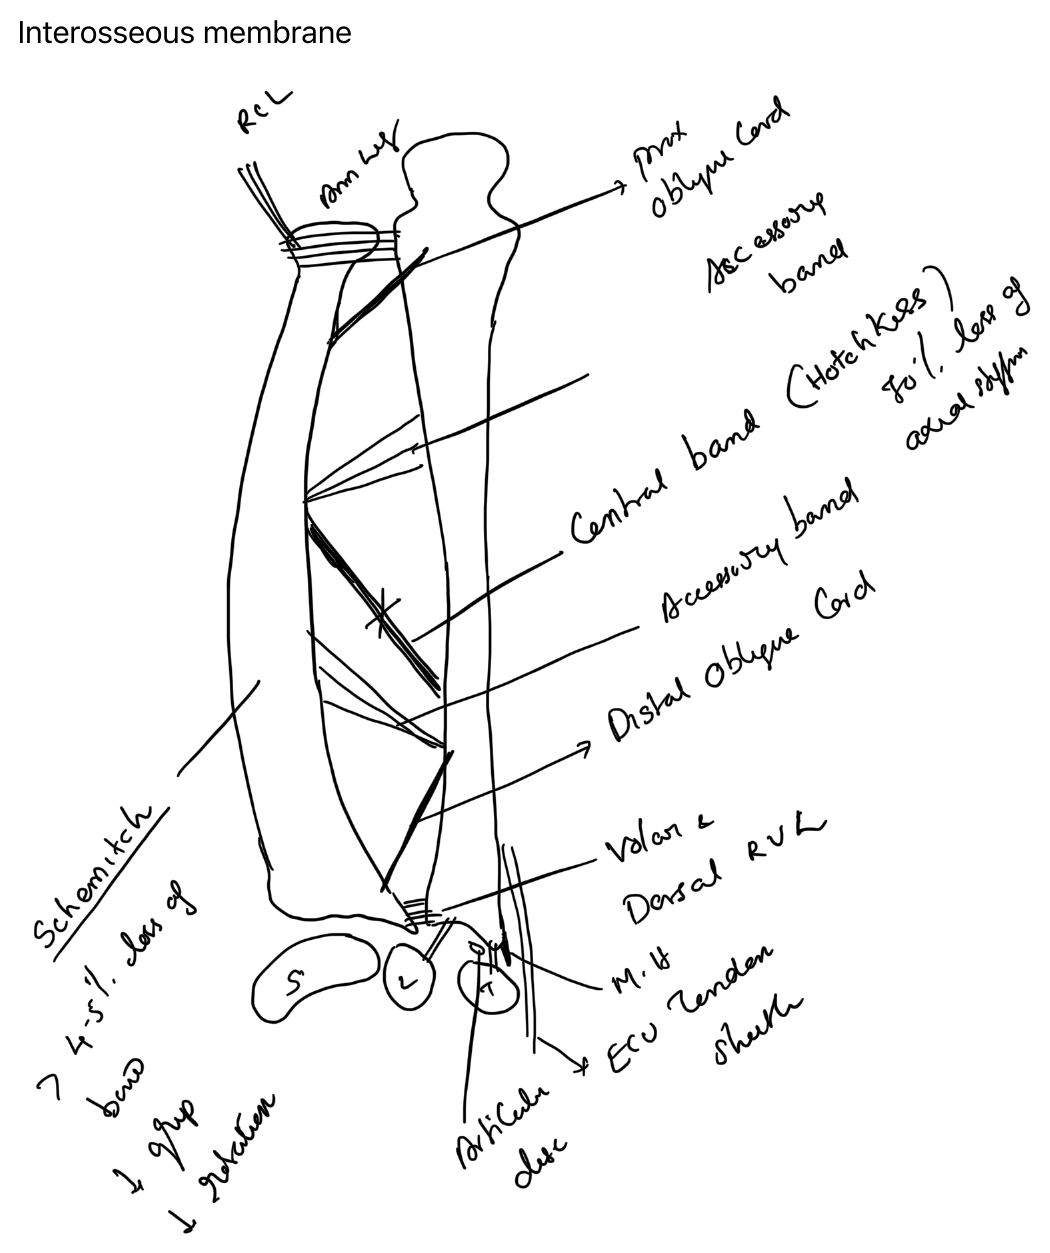 Interosseous membrane
RCL
Ann Lig
prox
oblique Cord
Accessory
band
Central band (Hotchkiss)
70% loss of
axial stiffn
Accessory band
Distal oblique Cord
Volar &
Dorsal RUL
M.H
ECU Tendon
sheath
Articular
disc
S
L
T
Schemitch
> 4-5% loss of
bow
↓ grip
↓ rotation